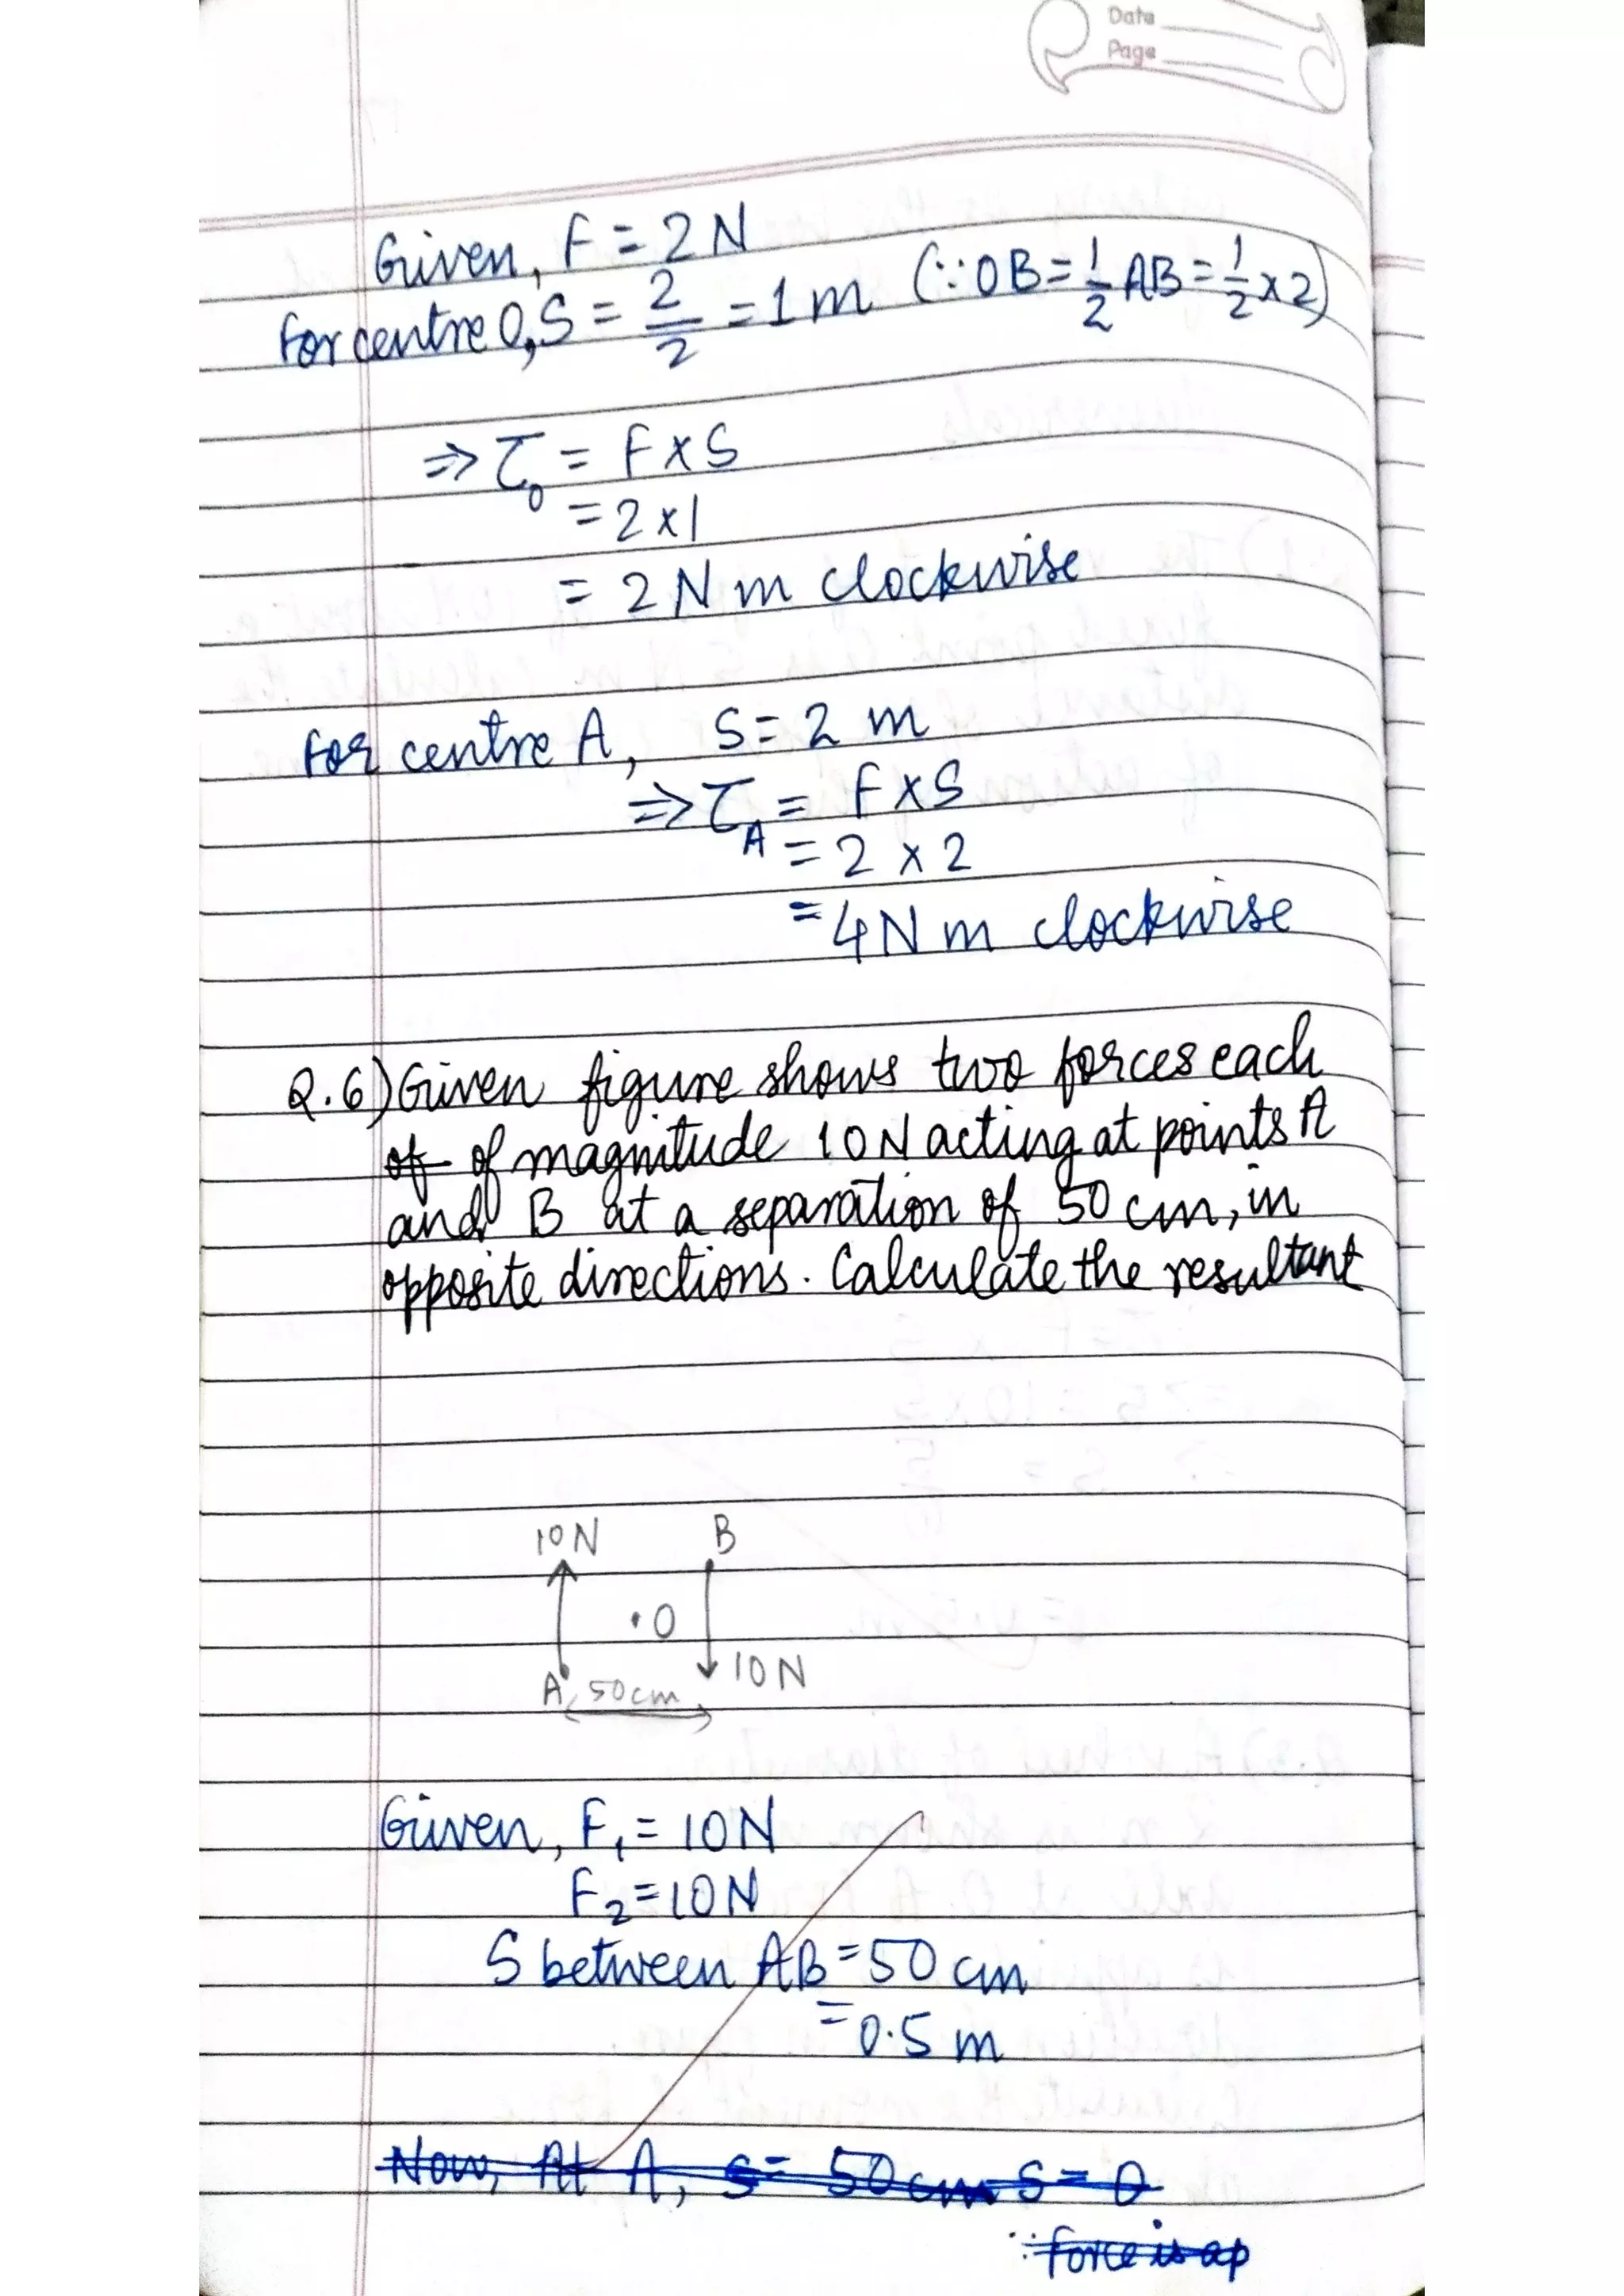 Date
Page
Given, F = 2 N
For centre O, S = 2/2 = 1 m (∵ OB = 1/2 AB = 1/2 x 2)
⇒ τ₀ = F x S
= 2 x 1
= 2 N m clockwise
For centre A, S = 2 m
⇒ τ_A = F x S
= 2 x 2
= 4 N m clockwise
Q.6) Given figure shows two forces each
of of magnitude 10 N acting at points A
and B at a separation of 50 cm, in
opposite directions. Calculate the resultant
10 N B
. O
A 50 cm 10 N
Given, F₁ = 10 N
F₂ = 10 N
S between AB = 50 cm
= 0.5 m
Now, At A, S = 50 cm S = 0
∵ force is ap